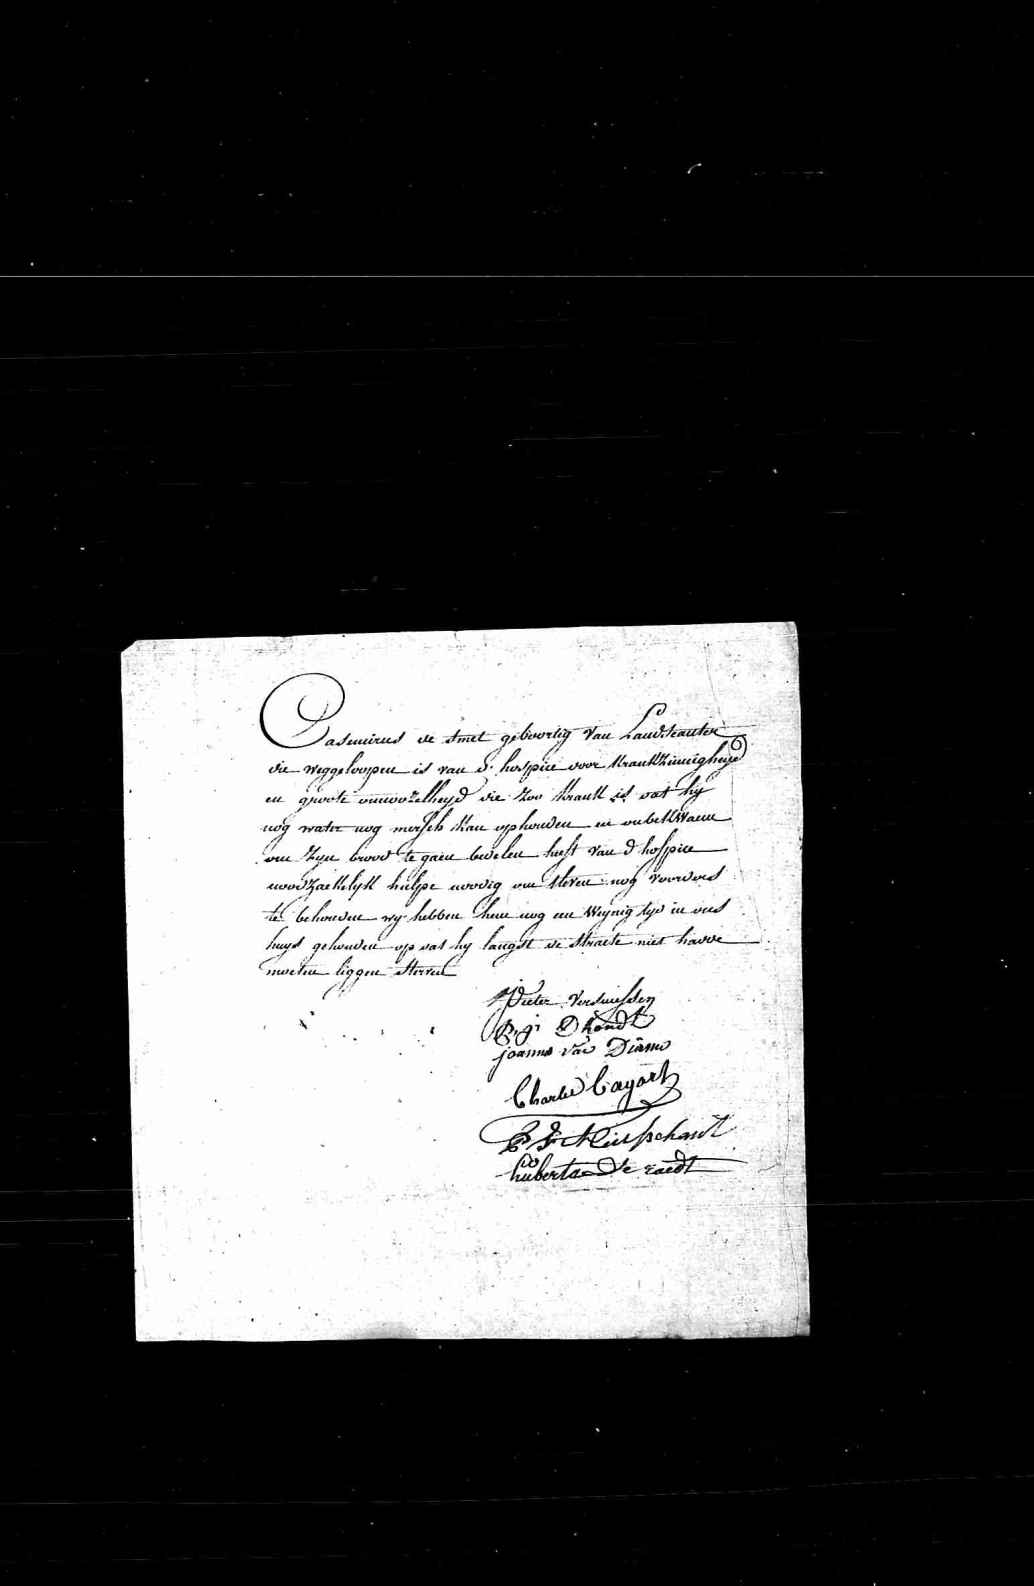 Casemirus de Smet geboortig van Landskauter
die weggeloopen is van d' hospice voor krankzinnigheyd
en groote onnoozelheyd die zoo krank is dat hy
nog water nog mersch kan ophouden en onbekwaem
om zyn brood te gaen bedelen heeft van d hospice
noodzaekelyk hulpe noodig om t'leven nog voorders
te behouden wy hebben hem nog en weynig tyd in ons
huys gehouden op dat hy langst de straete niet hadde
moeten liggen sterven
Pieter
P. j. Dhondt
joannes van
Charles Cayart
P F
huberta De raedt